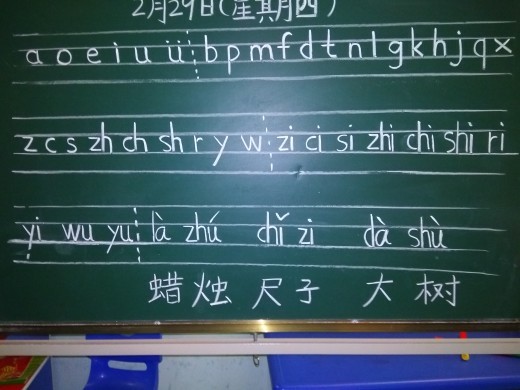 2月29日(星期四)
a o e i u ü b p m f d t n l g k h j q x
z c s zh ch sh r y w zi ci si zhi chi shi ri
yi wu yu là zhú chǐ zi dà shù
蜡烛 尺子 大树